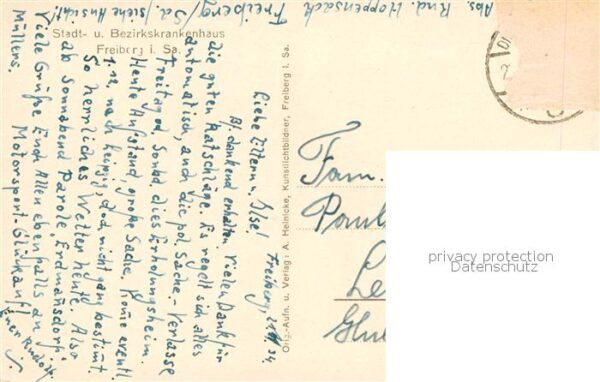 Abs. Rud. Hoppensack Freiberg/Sa. (siehe Ansicht!)
Stadt- u. Bezirkskrankenhaus
Freiberg i. Sa.
Freiberg, 34
Liebe Eltern u. Else!
Bf. dankend erhalten. Vielen Dank für
die guten Ratschläge. Es regelt sich alles
automatisch, auch die pol. Sache. Verlasse
Freitag od. Sonbd. dies Erholungsheim.
Heute Aufstand, große Sache, komme eventl.
nach Leipzig, doch nicht ganz bestimmt.
So herrliches Wetter heute. Also
ab Sonnabend Parole: Erdmannsdorf!
Viele Grüße Euch Allen ebenfalls an
Müllers. Motorsport-Glückauf!
Euer Rudolf.
Orig.-Aufn. u. Verlag: A. Heinicke, Kunstlichtbildner, Freiberg i. Sa.
Fam.
Paul
Le
privacy protection
Datenschutz